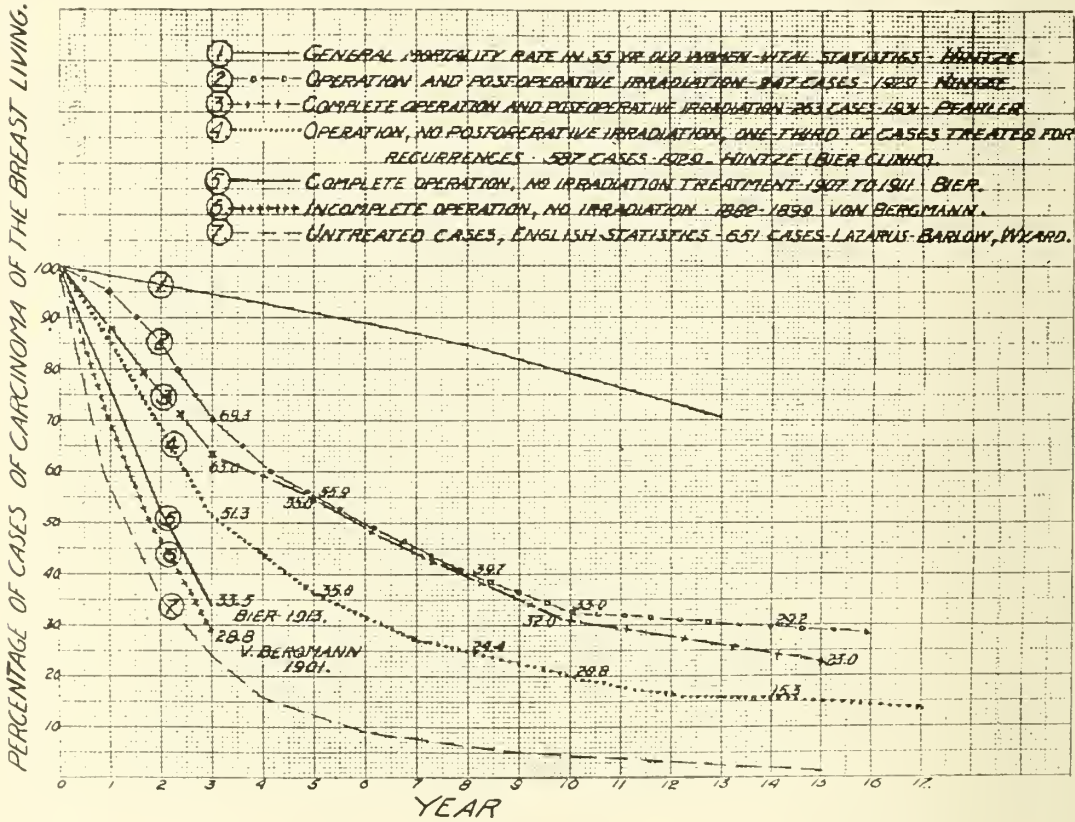 PERCENTAGE OF CASES OF CARCINOMA OF THE BREAST LIVING.
1 GENERAL MORTALITY RATE IN 55 YR OLD WOMEN-VITAL STATISTICS - HINTZE.
2 OPERATION AND POSTOPERATIVE IRRADIATION - 247 CASES 1929 - HINTZE.
3 COMPLETE OPERATION AND POSTOPERATIVE IRRADIATION-263 CASES 1931-PFAHLER
4 OPERATION, NO POSTOPERATIVE IRRADIATION, ONE-THIRD OF CASES TREATED FOR
RECURRENCES 587 CASES-1929- HINTZE (BIER CLINIC).
5 COMPLETE OPERATION, NO IRRADIATION TREATMENT-1907 TO 1911 BIER.
6 INCOMPLETE OPERATION, NO IRRADIATION 1882-1899 VON BERGMANN.
7 UNTREATED CASES, ENGLISH STATISTICS-651 CASES-LAZARUS-BARLOW, WYARD.
100
90
80
70
60
50
40
30
20
10
1
2
3
4
5
7
69.3
63.0
55.9
55.0
51.3
39.7
35.9
33.5
33.0
32.0
BIER 1913.
28.8
V. BERGMANN
1901.
29.2
24.4
23.0
20.8
15.3
0 1 2 3 4 5 6 7 8 9 10 11 12 13 14 15 16 17
YEAR